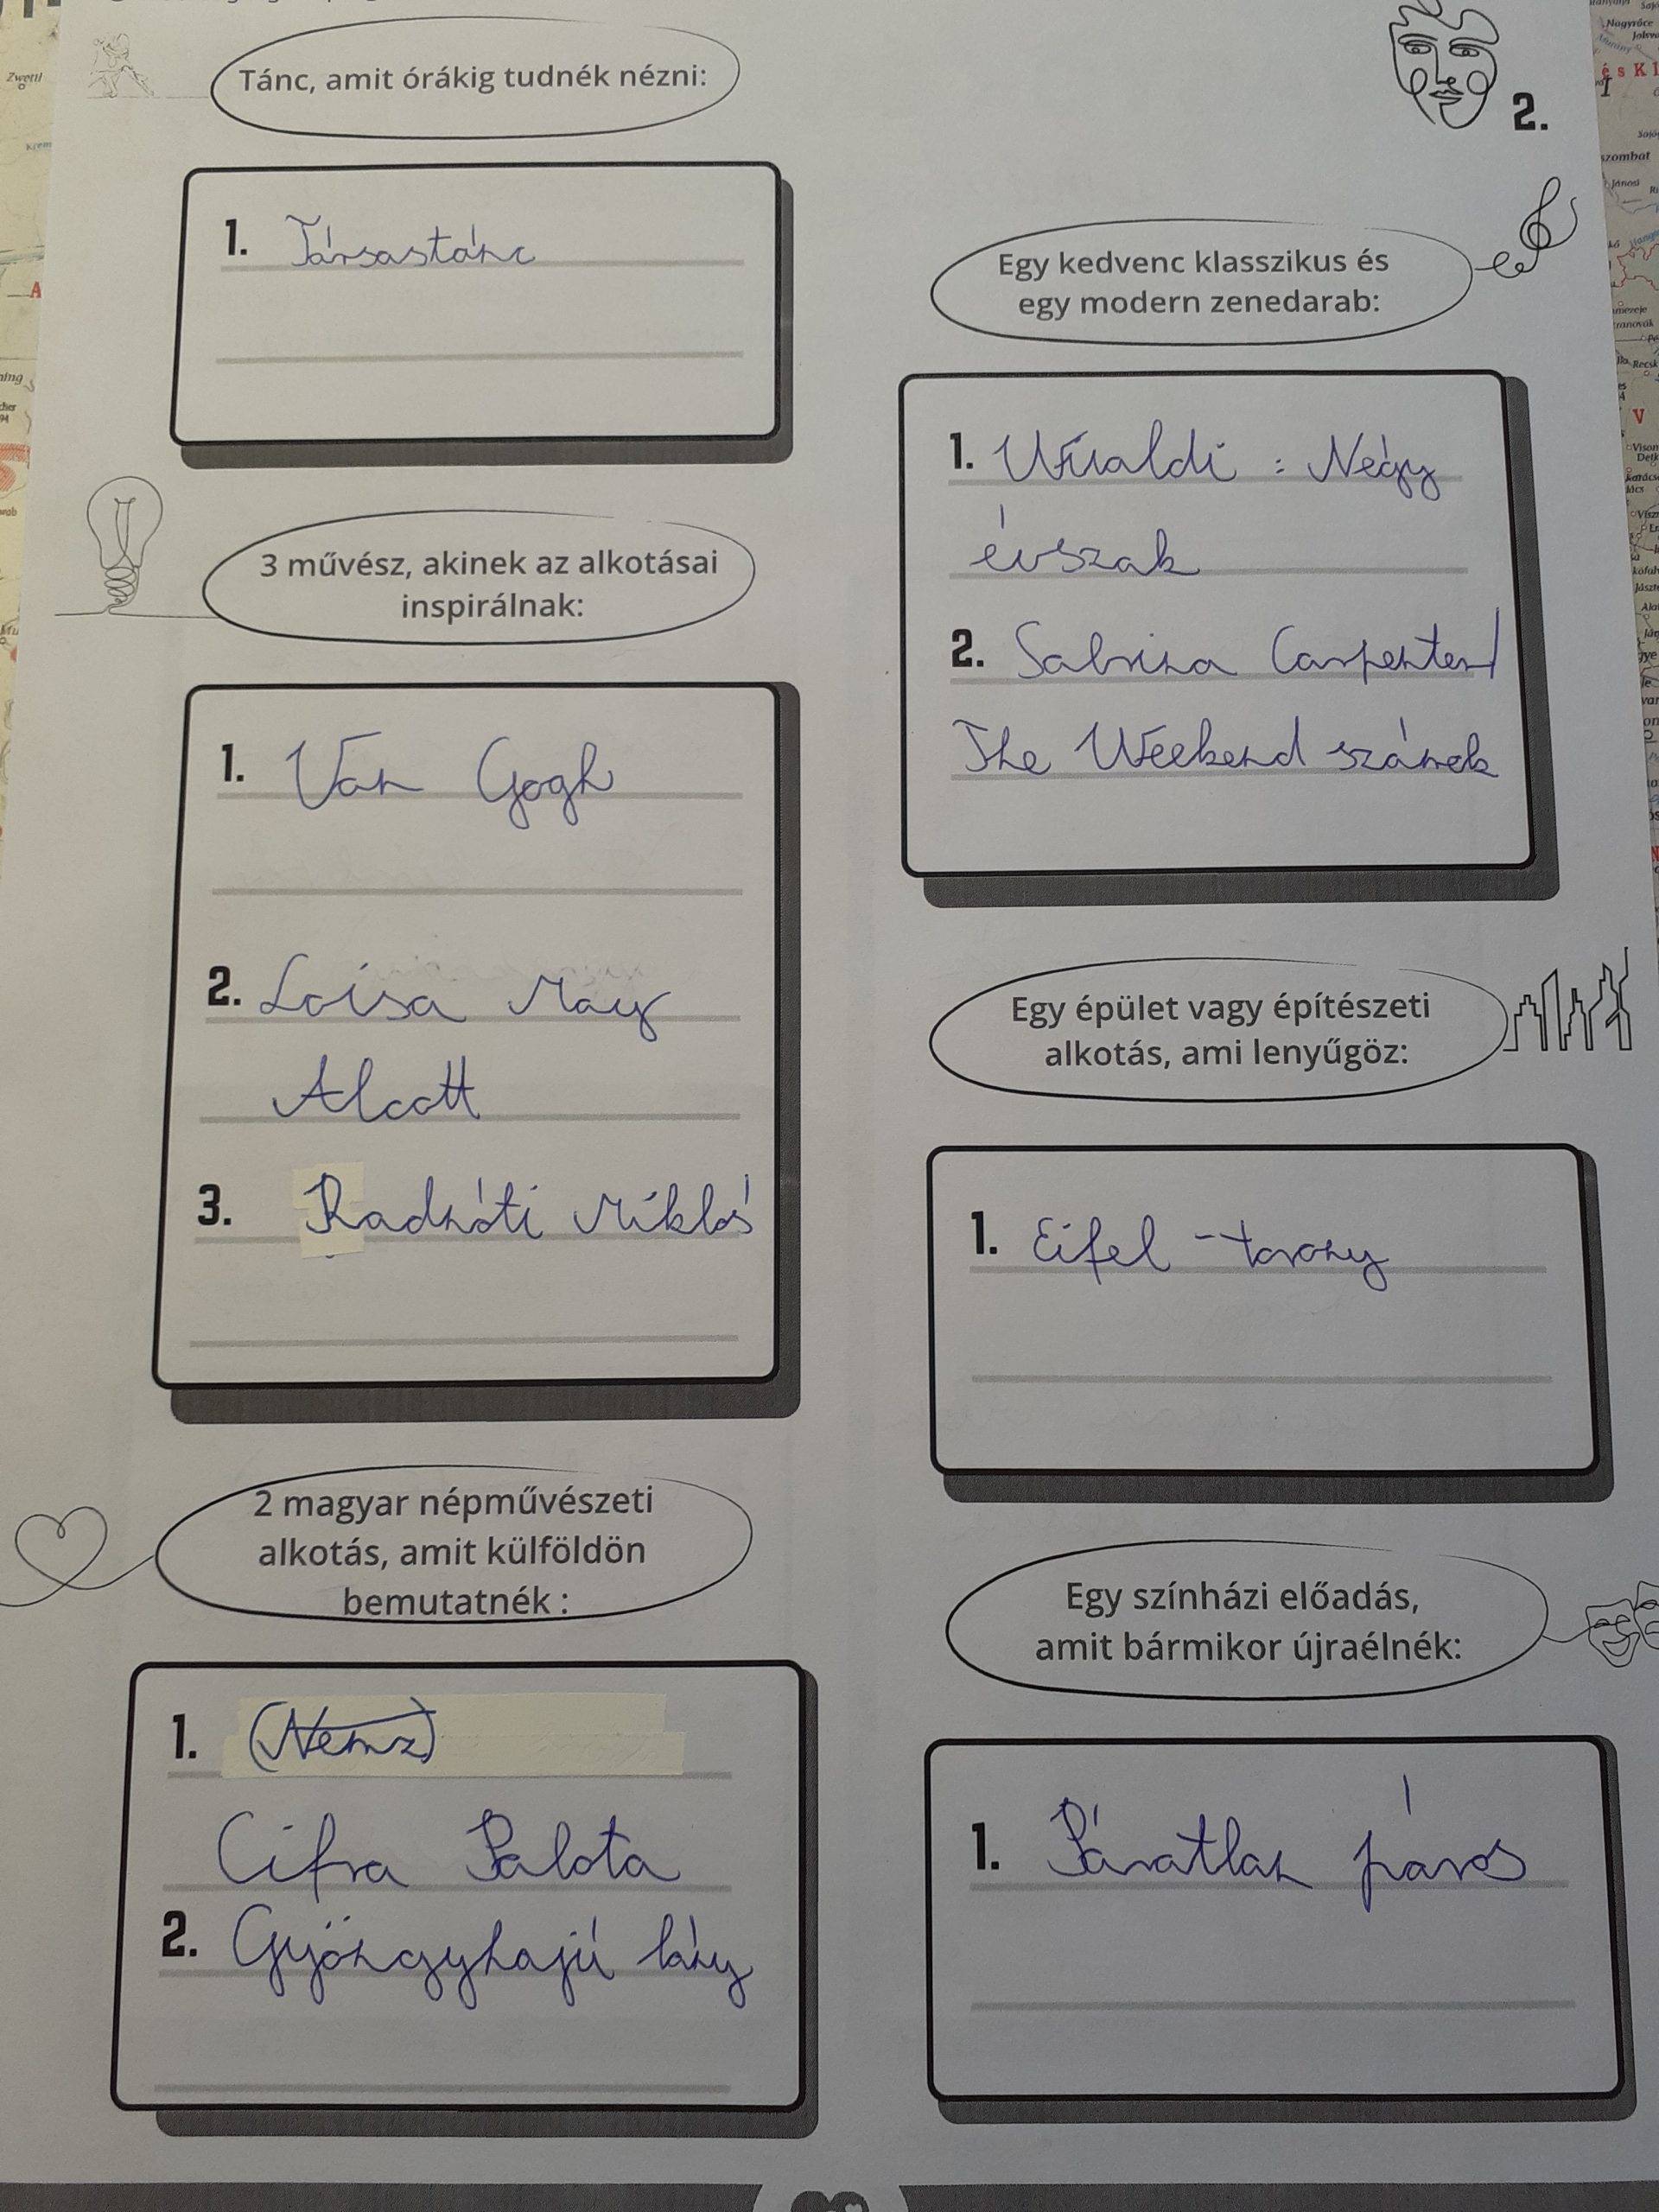 Tánc, amit órákig tudnék nézni:
1. Társastánc
3 művész, akinek az alkotásai
inspirálnak:
1. Van Gogh
2. Loisa May
Alcott
3. Radnóti Miklós
2 magyar népművészeti
alkotás, amit külföldön
bemutatnék :
1. (Nemz)
Cifra Palota
2. Gyöngyhajú lány
2.
Egy kedvenc klasszikus és
egy modern zenedarab:
1. Vivaldi : Négy
évszak
2. Sabrina Carpenter/
The Weekend számok
Egy épület vagy építészeti
alkotás, ami lenyűgöz:
1. Eifel - torony
Egy színházi előadás,
amit bármikor újraélnék:
1. Páratlan páros